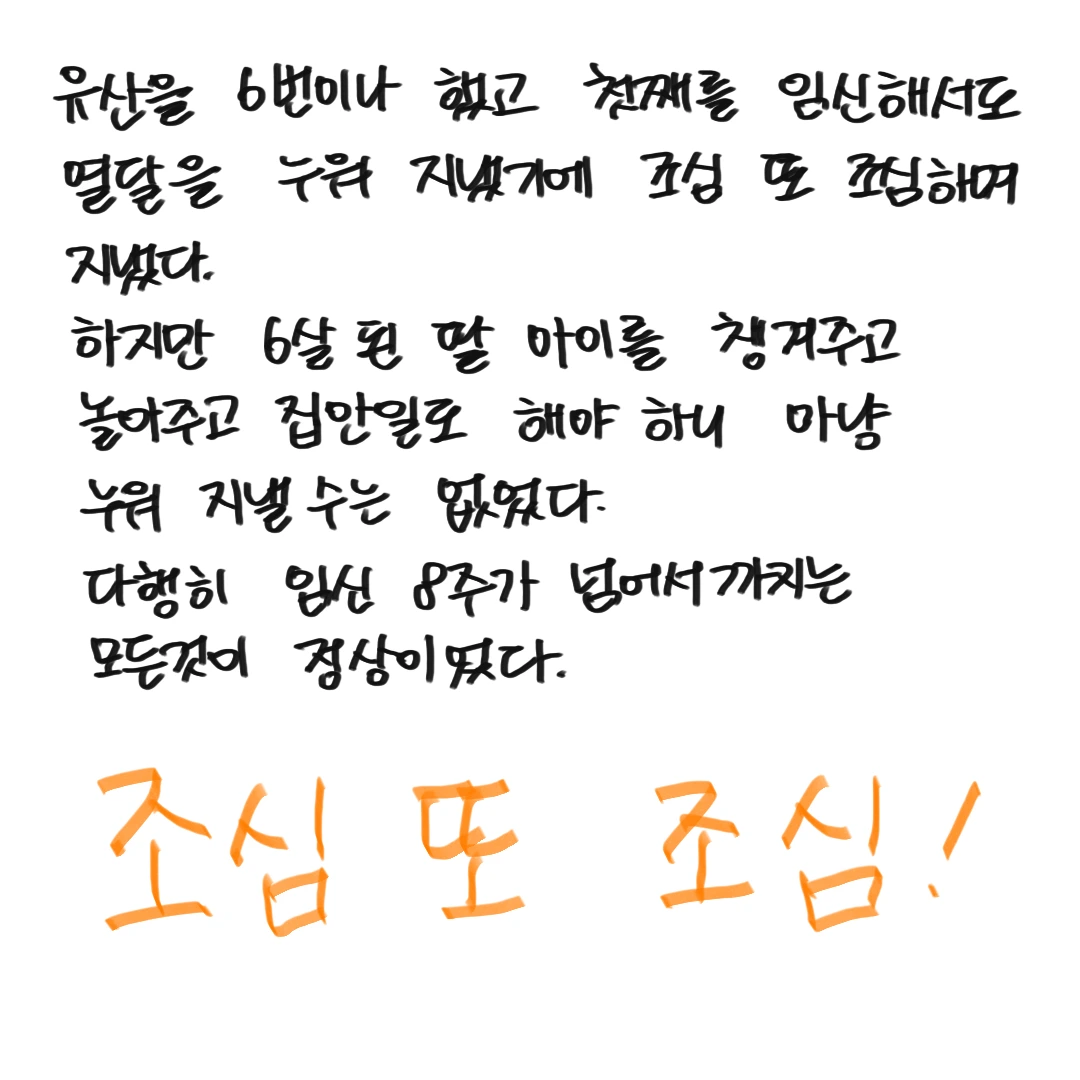 유산을 6번이나 했고 첫째를 임신해서도
열달을 누워 지냈기에 조심 또 조심하며
지냈다.
하지만 6살 된 딸 아이를 챙겨주고
놀아주고 집안일도 해야 하니 마냥
누워 지낼 수는 없었다.
다행히 임신 8주가 넘어서까지는
모든것이 정상이었다.
조심 또 조심!